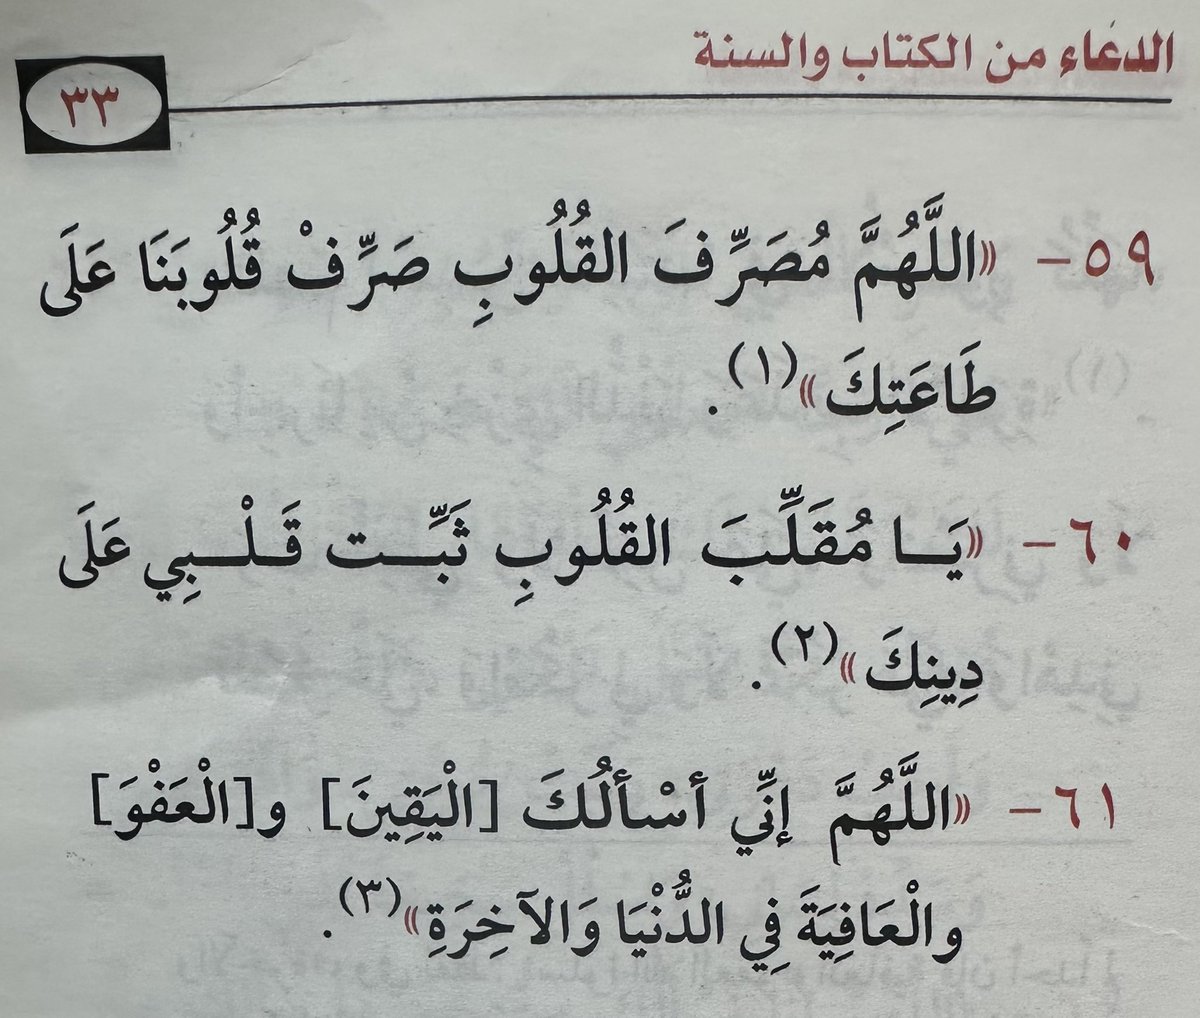 الدعاء من الكتاب والسنة
٣٣
٥٩- «اللَّهُمَّ مُصَرِّفَ القُلُوبِ صَرِّفْ قُلُوبَنَا عَلَى
طَاعَتِكَ»(١).
٦٠- «يَـا مُقَلِّبَ القُلُوبِ ثَبِّـت قَـلْـبِي عَلَى
دِينِكَ»(٢).
٦١- «اللَّهُمَّ إنِّي أسْألُكَ [الْيَقِينَ] و[الْعَفْوَ]
والْعَافِيَةَ فِي الدُّنْيَا وَالآخِرَةِ»(٣).